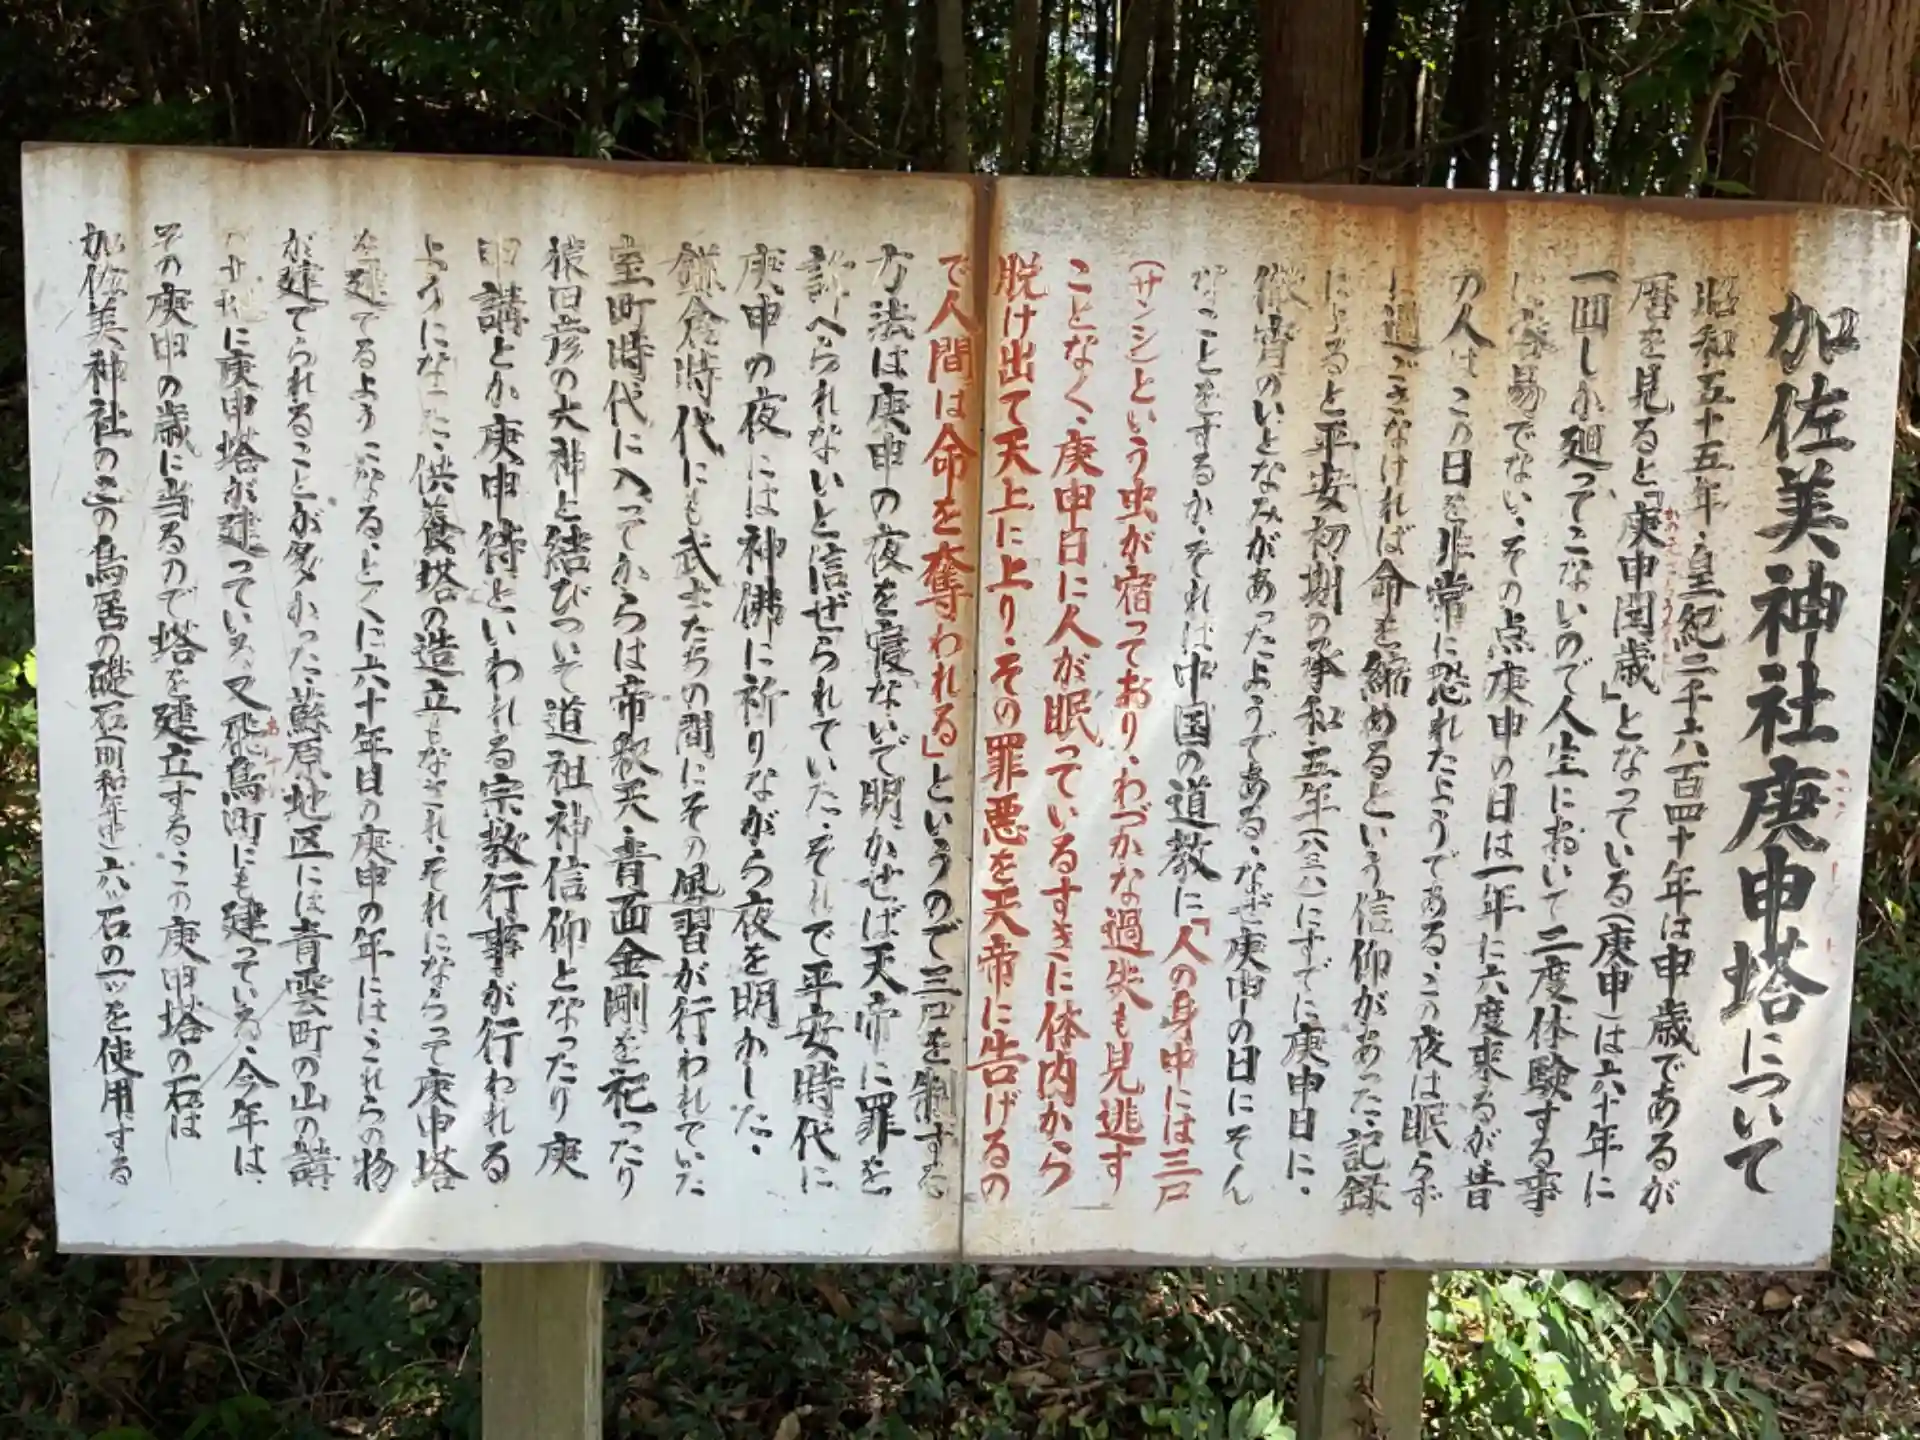 加佐美神社庚申塔について
昭和五十五年・皇紀二千六百四十年は申歳であるが
暦を見ると「庚申国歳」となっている(庚申)は六十年に
一回しか廻ってこないので人生において二度体験する事
は容易でない・その点庚申の日は一年に六度来るが昔
の人はこの日を非常に恐れたようである・この夜は眠らず
に過ごさなければ命を縮めるという信仰があった・記録
によると平安初期の承和五年(八三八)にすでに庚申日に・
徹宵のいとなみがあったようである・なぜ庚申の日にそん
なことをするか・それは中国の道教に「人の身中には三戸
(サンシ)という虫が宿っており・わづかな過失も見逃す
ことなく・庚申日に人が眠っているすきに体内から
脱け出て天上に上り・その罪悪を天帝に告げるの
で人間は命を奪われる」というので三戸を制する
方法は庚申の夜を寝ないで明かせば天帝に罪を
訴へられないと信ぜられていた・それで平安時代に
庚申の夜には神佛に祈りながら夜を明かした・
鎌倉時代にも武士たちの間にその風習が行われていた
室町時代に入ってからは帝釈天・青面金剛を祀ったり
猿田彦の大神と結びついて道祖神信仰となったり庚
申講とか庚申待といわれる宗教行事が行われる
ようになった・供養塔の造立もなされ・それにならって庚申塔
を建てるようになる・とくに六十年目の庚申の年にはこれらの物
が建てられることが多かった・蘇原地区には青雲町の山の講
に庚申塔が建っている・又飛鳥町にも建っている・今年は・
その庚申の歳に当るので塔を建立する・この庚申塔の石は
加佐美神社のこの鳥居の礎石(明和年時)六ッ石の一ッを使用する